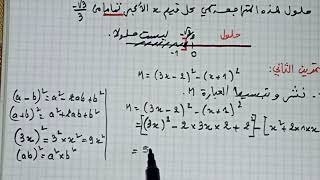 حلول هذه المتراجحة هي كل قيم x الأكبر تماما من -√3/3
حلول
ليست حلولا
-1 0
تمرين الثاني:
M = (3x - 2)² - (x + 1)²
نشر وتبسيط العبارة M.
M = (3x - 2)² - (x + 1)²
= [(3x)² - 2 × 3x × 2 + 2²] - [x² + 2×1×x
=
(a-b)² = a² - 2ab + b²
(a+b)² = a² + 2ab + b²
(3x)² = 3² × x² = 9x²
(ab)² = a² × b²